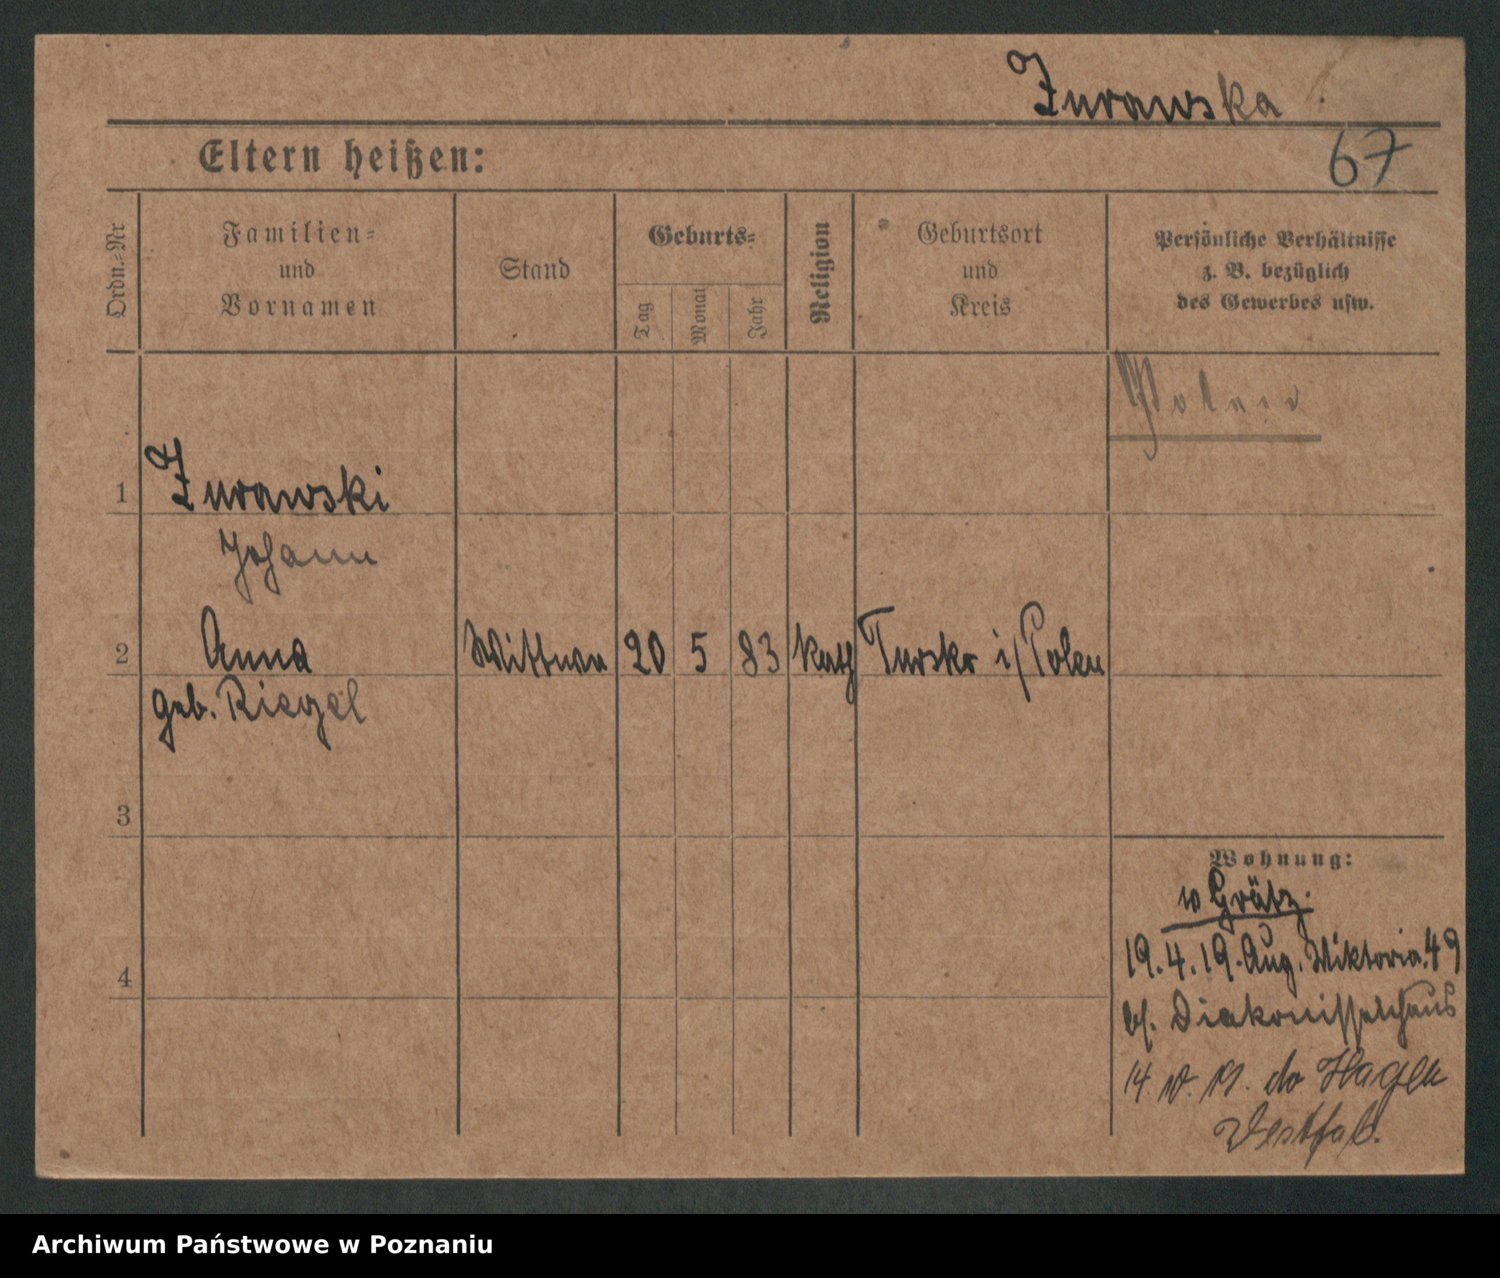 Żurawska
67
Eltern heißen:
Ordn.-Nr
Familien-
und
Vornamen
Stand
Geburts-
Tag
Monat
Jahr
Religion
Geburtsort
und
Kreis
Persönliche Verhältnisse
z. B. bezüglich
des Gewerbes usw.
1 Żurawski
Johann
2 Anna Wittwe 20 5 83 kath Tursko i/Polen
geb. Riegel
3
4
Wohnung:
w Grätz.
19.4.19. Aug. Wiktoria 49
bf. Diakonissenhaus
14. do Hagen
Westfal.
Archiwum Państwowe w Poznaniu